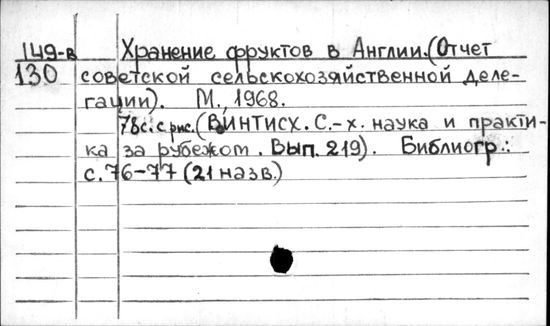 149-в Хранение фруктов в Англии. (Отчет
130 советской сельскохозяйственной деле-
гации). М., 1968.
78с. с рис. (ВИНТИСХ. С.-х. наука и практи-
ка за рубежот. Вып. 219). Библиогр.:
с. 76-77 (21 назв.)